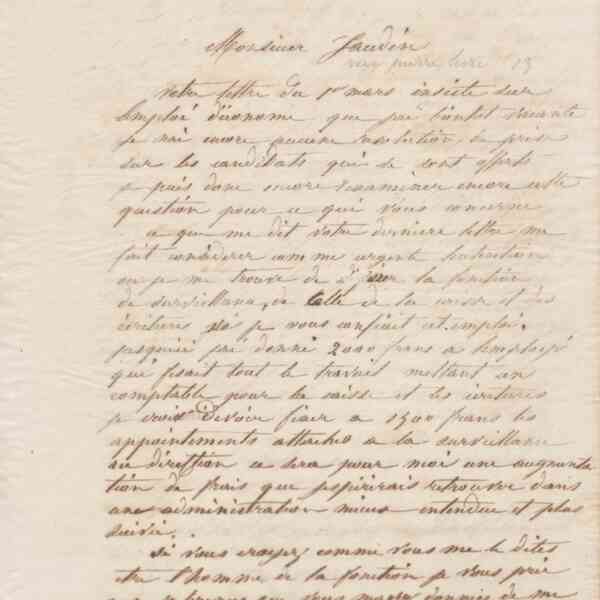 Monsieur Jaudin
votre lettre du 1er mars insiste sur
l'emploi d'économe que j'ai bientot vacante
je n'ai encore aucune resolution de prise
sur les candidats qui se sont offerts
je puis donc encore examiner encore cette
question pour ce qui vous concerne
ce que me dit votre derniere lettre me
fait considerer comme urgente
ou je me trouve de la fonction
de surveillance, de celle de la caisse et des
écritures si je vous confiait cet emploi.
jusquici j'ai donné 2000 frans a l'employé
qui fesait tout le travail mettant un
comptable pour la caisse et les écritures
je crois devoir fixer a 1500 frans les
appointements attachés a la surveillance
ou direction ce sera pour moi une augmenta
tion de frais que j'espererais retrouver dans
une administration mieux entendue et plus
suivie.
Si vous croyez comme vous me le dites
etre l'homme de la fonction je vous prie
vous m'avez données de me